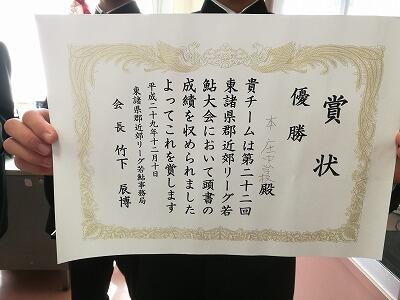 賞状
優勝
本庄中学校殿
貴チームは第二十二回
東諸県郡近郊リーグ若
鮎大会において頭書の
成績を収められました
よってこれを賞します
平成二十九年十二月十日
東諸県郡近郊リーグ若鮎事務局
会長 竹下 辰博